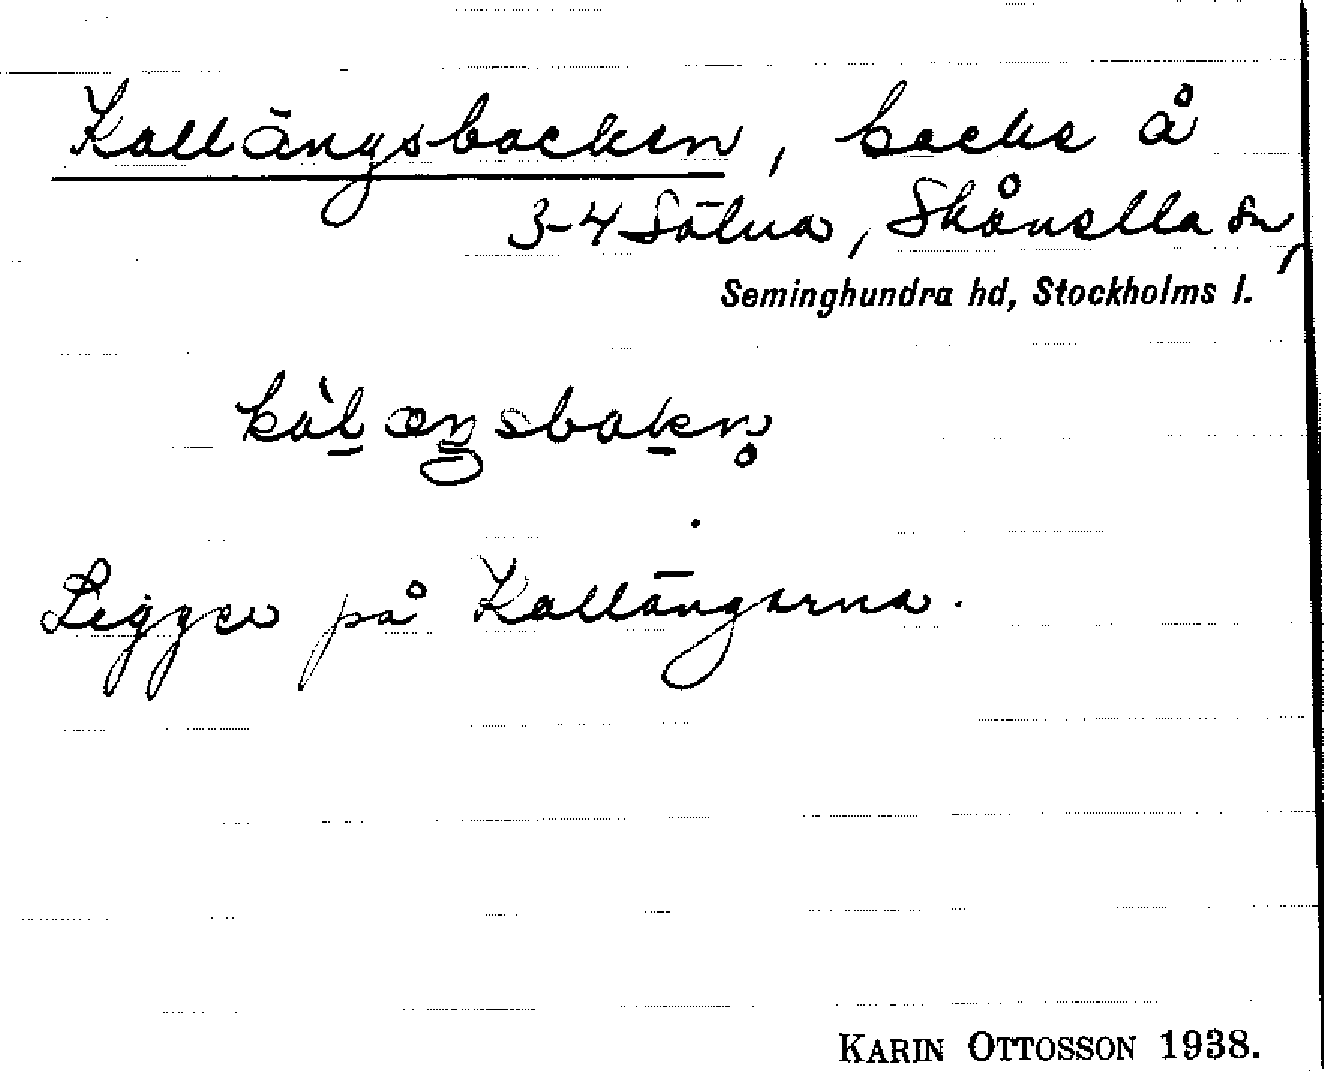 Kallängsbacken, backe å
3-4 Sälna, Skånella sn,
Seminghundra hd, Stockholms l.
kàl æŋsbakn̥
Ligger på Kallängarna.
KARIN OTTOSSON 1938.